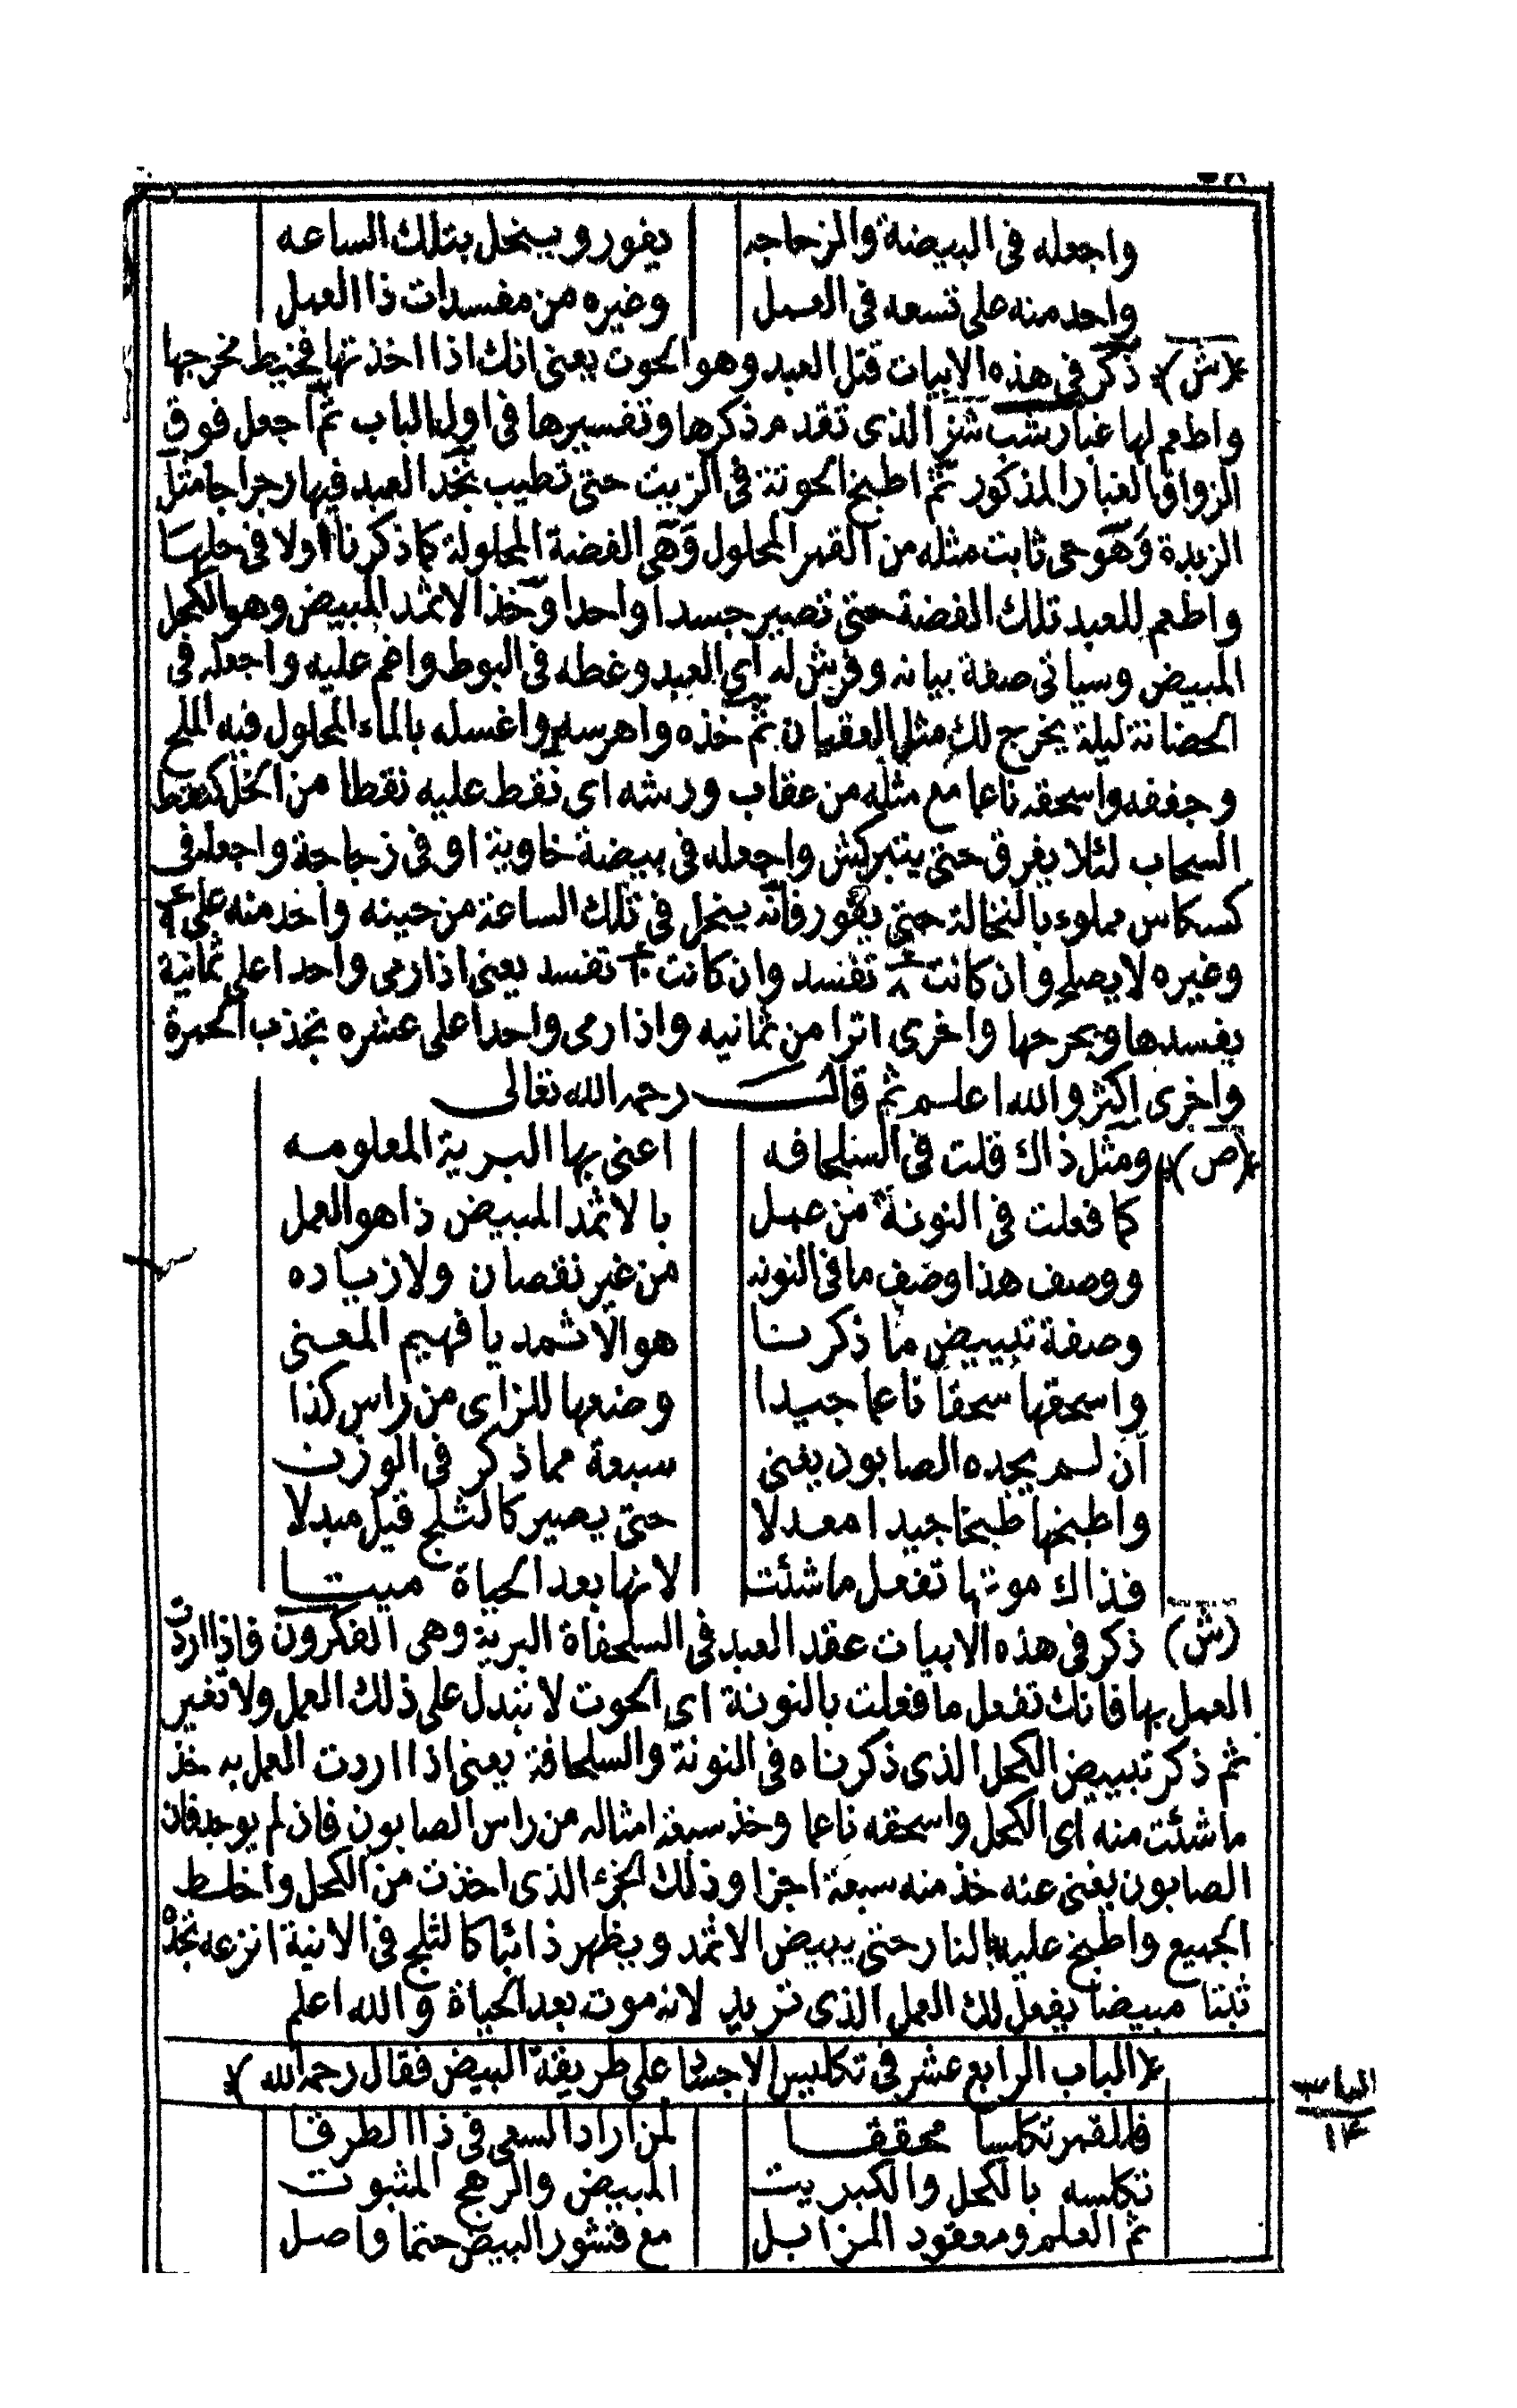 واجعله فى البيضة والزجاجه يفور وينحل بتلك الساعه
واحد منه على تسعه فى العمل وغيره من مفسدات ذا العمل
(ش) ذكر فى هذه الابيات قتل العبد وهو الحوت يعنى انك اذا اخذتها فخيط مخرجها
واطعم لها غبار شب شز الذى تقدم ذكرها وتفسيرها فى اول الباب ثم اجعل فوق
الزواق الغبار المذكور ثم اطبخ الحوتة فى الزيت حتى تطيب تجد العبد فيها رجراجا مثل
الزبدة وهو حى ثابت مثله من القمر المحلول وهى الفضة المحلولة كما ذكرنا اولا فى حلها
واطعم للعبد تلك الفضة حتى تصير جسدا واحدا وخذ الاثمد المبيض وهو الكحل
المبيض وسياتى صفة بيانه وفرش له اى العبد وغطه فى البوط واغم عليه واجعله فى
الحضانة ليلة يخرج لك مثل العقيان ثم خذه واهرسه واغسله بالماء المحلول فيه الملح
وجففه واسحقه ناعما مع مثله من عقاب ورشه اى نقط عليه نقطا من الخل كنقط
السحاب لئلا يغرق حتى يتبركش واجعله فى بيضة خاوية او فى زجاجة واجعله فى
كسكاس مملوء بالنخالة حتى يفور فانه ينحل فى تلك الساعة من حينه واخد منه على ٩
وغيره لا يصلح وان كانت ٨ تفسد وان كانت ١٠ تفسد يعنى اذا رمى واحدا على ثمانية
يفسدها ويحرحها واخرى اترا من ثمانيه واذا رمى واحدا على عشره تجذب الحمرة
واخرى اكثر والله اعلم ثم قال رحمه الله تعالى
(ص) ومثل ذاك قلت فى السلحافه اعنى بها البرية المعلومه
كما فعلت فى النونة من عمل بالاثمد المبيض ذا هو العمل
ووصف هذا وصف ما فى النونه من غير نقصان ولا زياده
وصفة تبييض ما ذكرنا هو الاثمد يا فهيم المعنى
واسحقها سحقا ناعما جيدا وضعها للزاى من راس كذا
ان لم يجده الصابون يغنى سبعة مما ذكر فى الوزن
واطبخها طبخا جيدا معدلا حتى يصير كالثلج قيل مبدلا
فذاك موتها تفعل ما شئت لانها بعد الحياة ميتا
(ش) ذكر فى هذه الابيات عقد العبد فى السلحفاة البرية وهى الفكرون فاذا اردت
العمل بها فانك تفعل ما فعلت بالنونة اى الحوت لا تبدل على ذلك العمل ولا تغير
ثم ذكر تبييض الكحل الذى ذكرناه فى النونة والسلحافة يعنى اذا اردت العمل به خذ
ما شئت منه اى الكحل واسحقه ناعما وخذ سبعة امثاله من راس الصابون فان لم يوجد فان
الصابون يغنى عنه خذ منه سبعة اجزا وذلك الجزء الذى اخذت من الكحل واخلط
الجميع واطبخ عليه بالنار حتى يبيض الاثمد ويظهر ذائبا كالثلج فى الانية انزعه تجده
ثبتا مبيضا يفعل لك العمل الذى تريد لانه موت بعد الحياة والله اعلم
(الباب الرابع عشر فى تكليس الاجساد على طريقة البيض فقال رحمه الله)
الباب
١٤
فللقمر تكلسا محققا لمن اراد السعى فى ذا الطرقا
تكلسه بالكحل والكبريت المبيض والرهج المثبوت
ثم العلم ومعقود المزابل مع قشور البيض حتما واصل